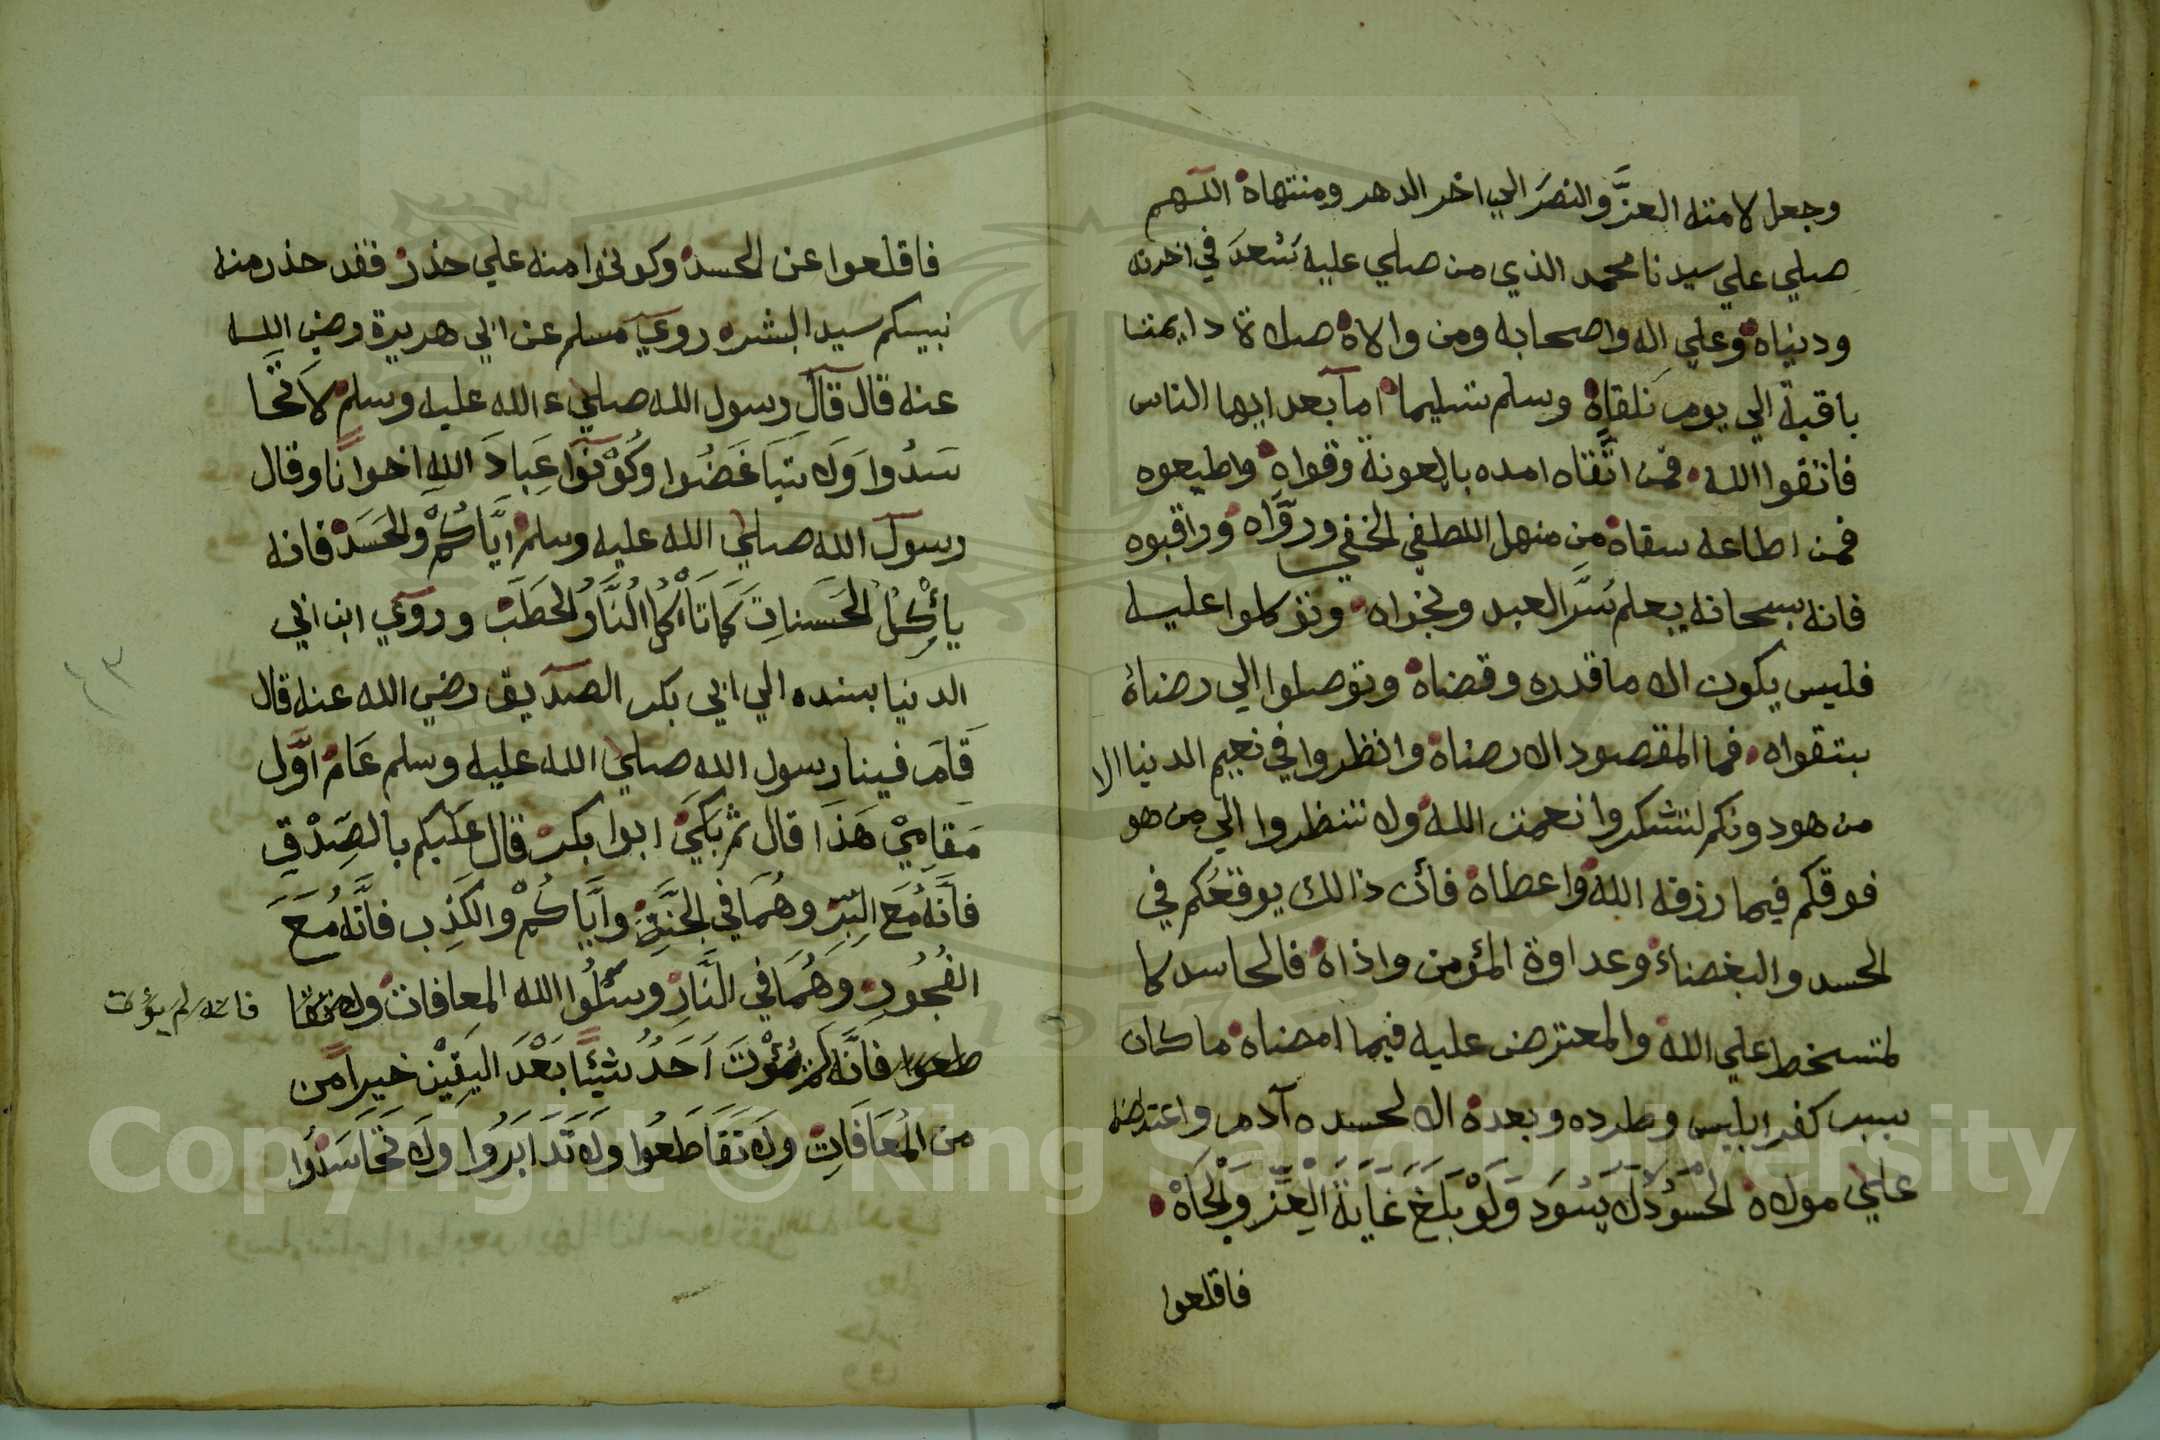 وجعل لامته العزَّ والنصَر الي اخر الدهر ومنتهاه اللهم
صلي علي سيدنا محمد الذي من صلي عليه تَسْعدَ في اخرته
ودنياه وعلي اله واصحابه ومن والاه صلاة دايمتا
باقية الي يوم نلقاه وسلم تسليما اما بعد ايها الناس
فاتقوا الله فمن اتَّقاه امده بالعونة وقواه واطيعوه
فمن اطاعه سقاه من منهل اللطفي الخفي وروَّاه وراقبوه
فانه سبحانه يعلم سَّر العبد ونجواه وتوكلوا عليه
فليس يكون الا ما قدره وقضاه وتوصلوا الي رضاه
بتقواه فما المقصود الا رضاه وانظروا في نعيم الدنيا الا
من هو دونكم لتشكروا نعمت الله ولا تنظروا الي من هو
فوقكم فيما رزقه الله واعطاه فأن ذالك يوقعُكم في
الحسد والبغضاء وعداوة المؤمن واذاه فالحاسد كا
لمتسخط علي الله والمعترض عليه فيما امضاه ما كان
سبب كفر ابليس وطرده وبعده الا لحسده آدم واعتراضه
علي مولاه الحْسَوُدُ لَا يَسُوَد وَلَوْ بَلَغَ غَايَةَ الْعِزِّ وَالجَاهْ
فاقلعوا
فاقلعوا عن الحسد وكونوا منه علي حذر فقد حذر منه
نبيكم سيد البشر روي مسلم عن ابي هريرة رضي الله
عنه قال قال رسول الله صلي الله عليه وسلم لاَ تَّحا
سَدُوا وَلا تَبَاغَضُوا وكُوْنوَا عِبادَ اللهِ اخوانًا وقال
رسول الله صلي الله عليه وسلم ايَّاكُمْ والحَسَدْ فانه
يأْكُلُ الحَسَناتِ كَمَا تَأْكُلُ النَّارُ الحَطَبَ وروي ابن ابي
الدنيا بسنده الي ابي بكر الصديق رضي الله عنه قال
قَامَ فينا رسول الله صلي الله عليه وسلم عَامَ اوَّل
مَقامِيْ هَذَا قال ثم بَكَيْ ابوا بكر قال عَلَيكم بالصِّدْقِ
فانَّهُ مَعَ البِرِّ وهُمَا في الجَنَّةِ وأيَّاكُمْ والكَذِب فانَّهُ مَعَ
الفُجُورِ وَهُمَا في النَّارِ وسئَلُوا الله المعافات ولا تقا
فانه لم يؤت
طعوا فانَّه لم يُؤْتَ اَحَدُ شيْئًا بَعْدَ اليَقِيْن خيرا من
من المُعَافَاتِ ولا تَقَاطَعُوا ولا تَدَابَرُوا ولا تَحَاسَدُوا
٤٣
Copyright © King Saud University
1957